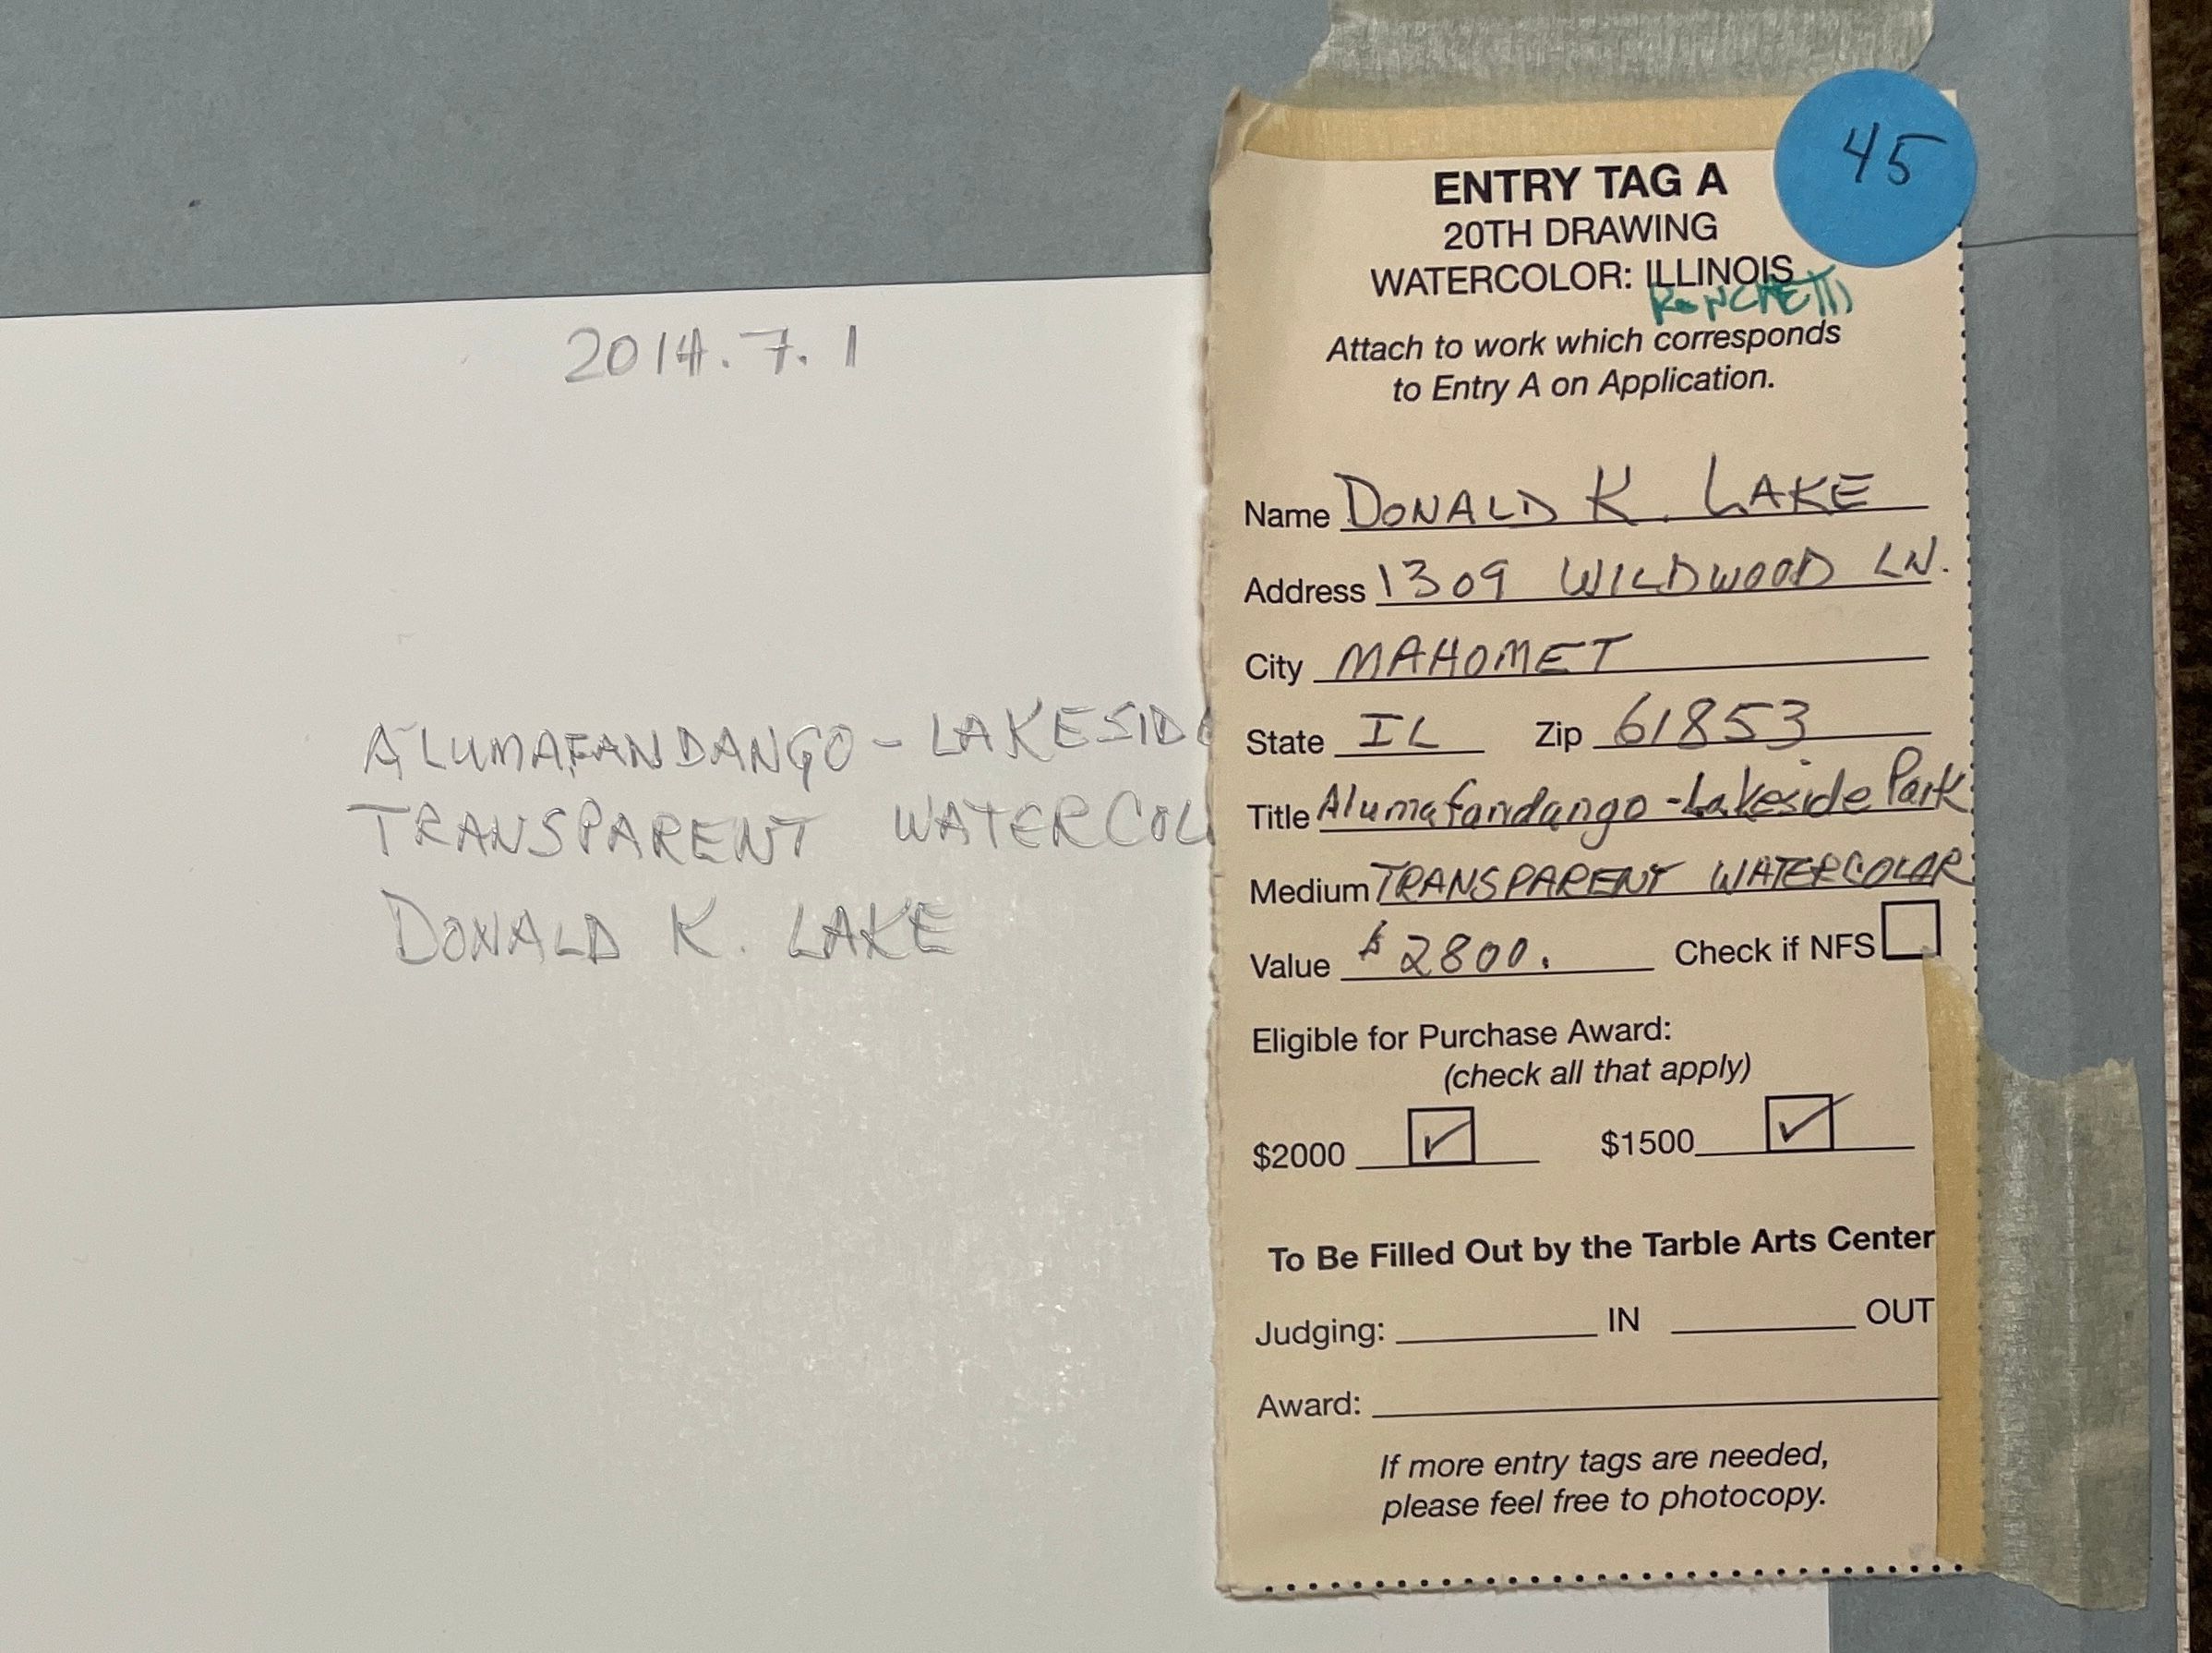 2014.7.1
ALUMAFANDANGO - LAKESIDE
TRANSPARENT WATERCOL
DONALD K. LAKE
45
ENTRY TAG A
20TH DRAWING
WATERCOLOR: ILLINOIS
Attach to work which corresponds
to Entry A on Application.
Name DONALD K. LAKE
Address 1309 WILDWOOD LN.
City MAHOMET
State IL Zip 61853
Title Alumafandango - Lakeside Park
Medium TRANSPARENT WATERCOLOR
Value $2800. Check if NFS
Eligible for Purchase Award:
(check all that apply)
$2000 ✓ $1500 ✓
To Be Filled Out by the Tarble Arts Center
Judging: IN OUT
Award:
If more entry tags are needed,
please feel free to photocopy.